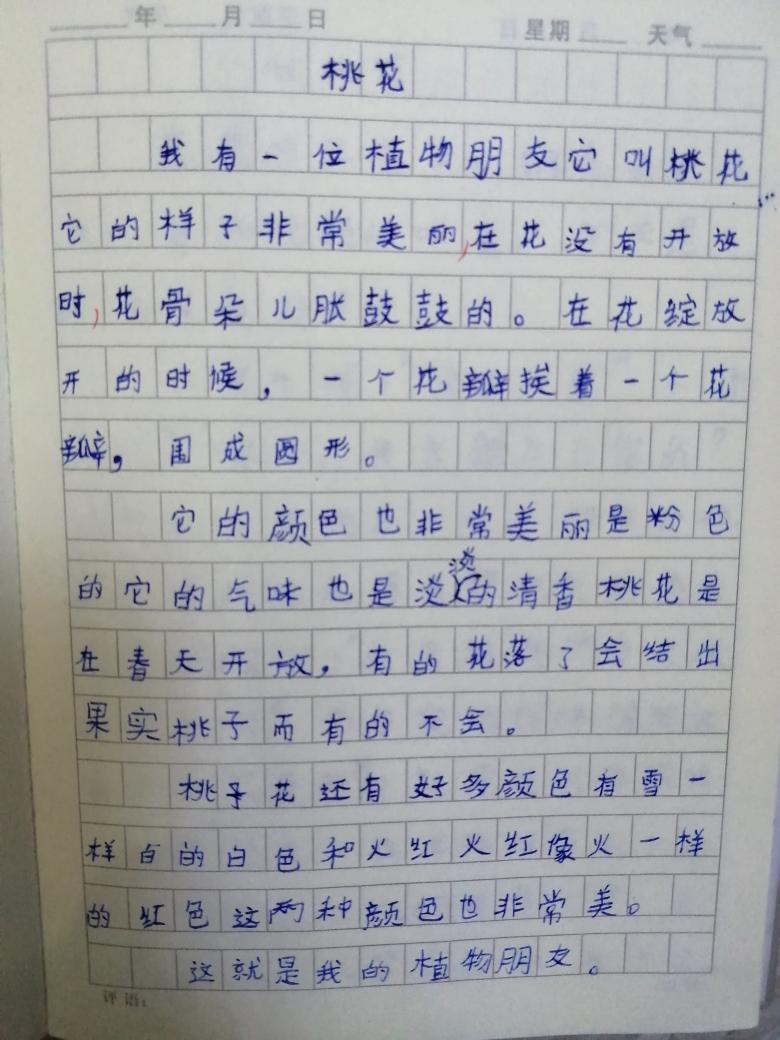 年 月 日 星期 天气
桃花
我有一位植物朋友它叫桃花
它的样子非常美丽,在花没有开放
时,花骨朵儿胀鼓鼓的。在花绽放
开的时候,一个花瓣挨着一个花
瓣,围成圆形。
它的颜色也非常美丽是粉色
的它的气味也是淡淡的清香桃花是
在春天开放,有的花落了会结出
果实桃子而有的不会。
桃子花还有好多颜色有雪一
样白的白色和火红火红像火一样
的红色这两种颜色也非常美。
这就是我的植物朋友。
评语: